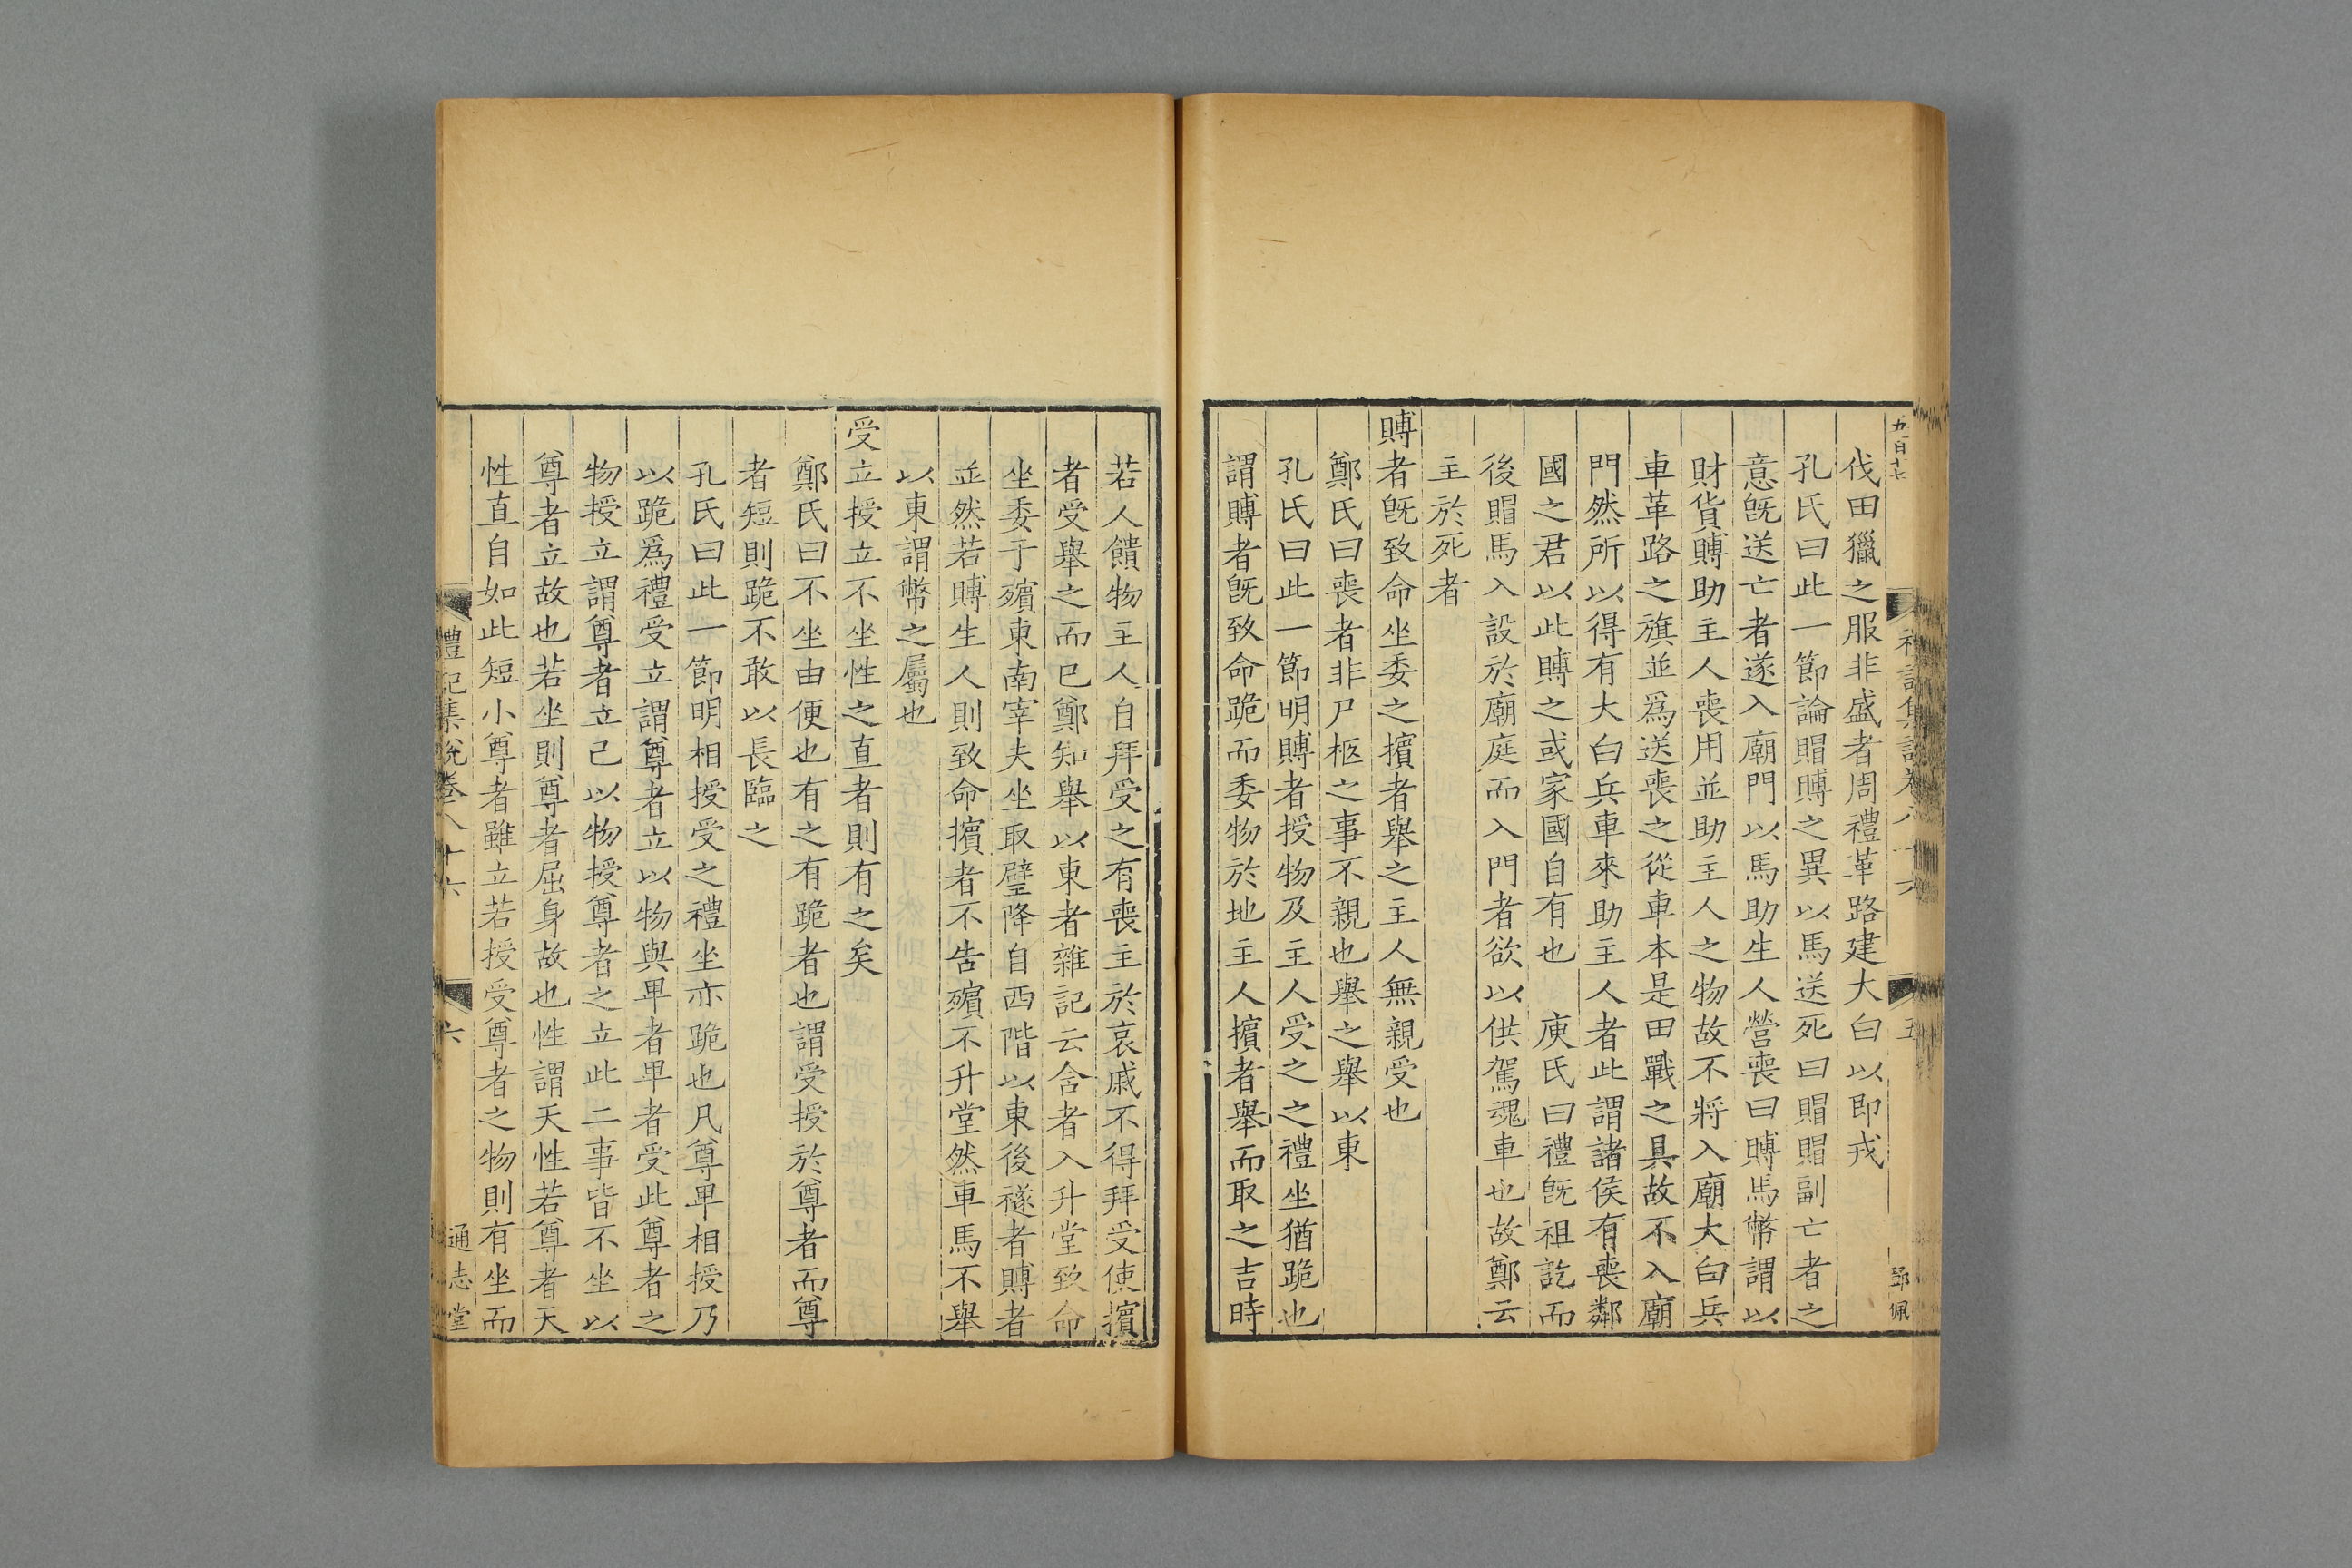 九百十七
禮記集說卷八十六
五
鄧佩
伐田獵之服非盛者周禮革路建大白以即戎
孔氏曰此一節論賵賻之異以馬送死曰賵賵副亡者之
意旣送亡者遂入廟門以馬助生人營喪曰賻馬幣謂以
財貨賻助主人喪用並助主人之物故不將入廟大白兵
車革路之旗並爲送喪之從車本是田戰之具故不入廟
門然所以得有大白兵車來助主人者此謂諸侯有喪鄰
國之君以此賻之或家國自有也 庾氏曰禮旣祖訖而
後賵馬入設於廟庭而入門者欲以供駕魂車也故鄭云
主於死者
賻者旣致命坐委之擯者舉之主人無親受也
鄭氏曰喪者非尸柩之事不親也舉之舉以東
孔氏曰此一節明賻者授物及主人受之之禮坐猶跪也
謂賻者旣致命跪而委物於地主人擯者舉而取之吉時
若人饋物主人自拜受之有喪主於哀戚不得拜受使擯
者受舉之而已鄭知舉以東者雜記云含者入升堂致命
坐委于殯東南宰夫坐取璧降自西階以東後襚者賻者
並然若賻生人則致命擯者不告殯不升堂然車馬不舉
以東謂幣之屬也
受立授立不坐性之直者則有之矣
鄭氏曰不坐由便也有之有跪者也謂受授於尊者而尊
者短則跪不敢以長臨之
孔氏曰此一節明相授受之禮坐亦跪也凡尊卑相授乃
以跪爲禮受立謂尊者立以物與卑者卑者受此尊者之
物授立謂尊者立己以物授尊者之立此二事皆不坐以
尊者立故也若坐則尊者屈身故也性謂天性若尊者天
性直自如此短小尊者雖立若授受尊者之物則有坐而
禮記集說卷八十六
六
通志堂